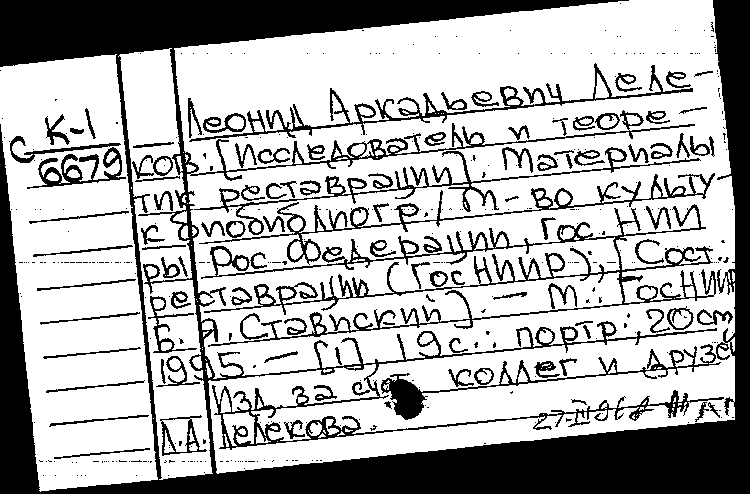 Леонид Аркадьевич Леле-
С К-1
6679
ков: [Исследователь и теоре-
тик реставрации]: Материалы
к биобиблиогр. / М-во культу-
ры Рос. Федерации, Гос. НИИ
реставрации (ГосНИИР); [Сост.:
Б. Я. Ставиский]. — М.: ГосНИИР
1995. — [1], 19 с.: портр.; 20см
Изд. за счет коллег и друзей
Л.А. Лелекова.
27-III 96